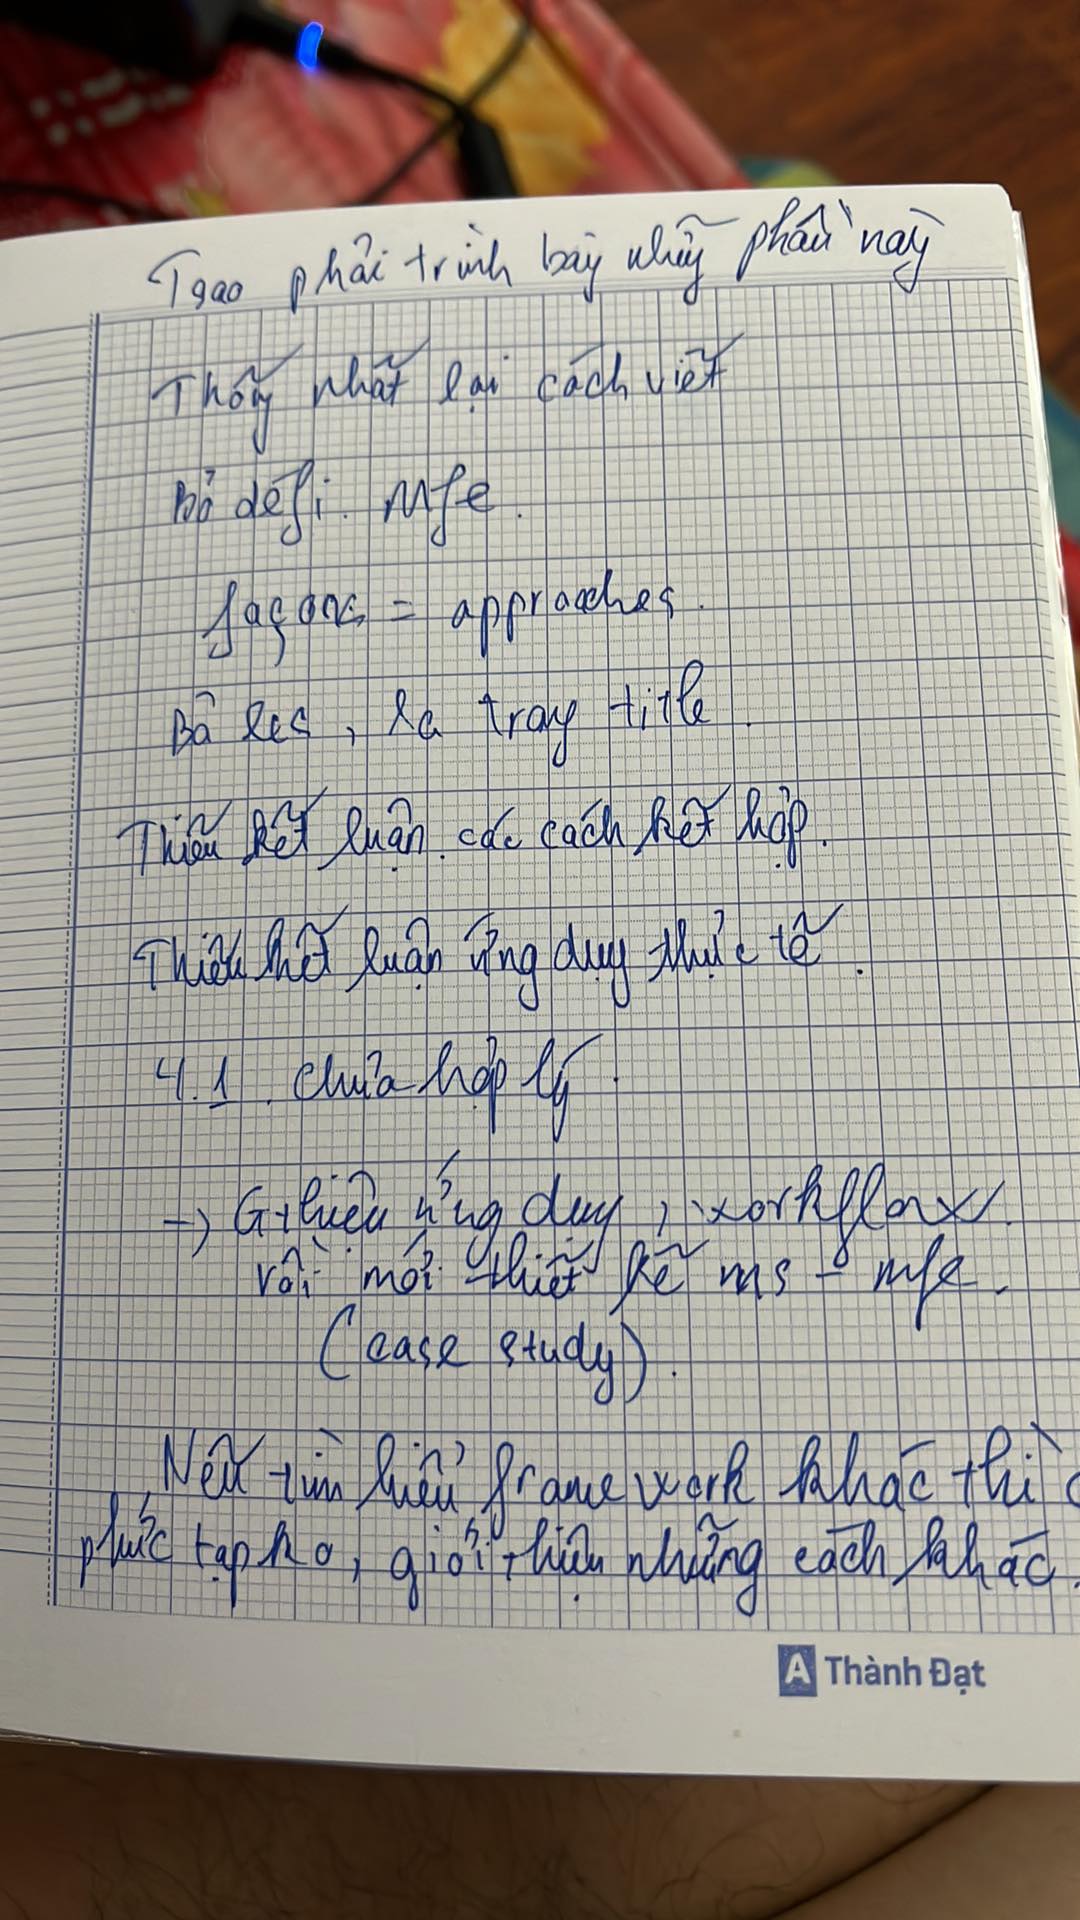 Tsao phải trình bày những phần này
Thống nhất lại cách viết
Bỏ défi. Mfe.
façons = approaches.
Bỏ les, la trong title.
Thiếu kết luận các cách kết hợp.
Thiếu kết luận ứng dụng thực tế.
4.1. chưa hợp lý.
-> G.thiệu ứng dụng, workflow.
rồi mới thiết kế ms - mfe.
(case study).
Nếu tìm hiểu framework khác thì
phức tạp ko, giới thiệu những cách khác.
A Thành Đạt